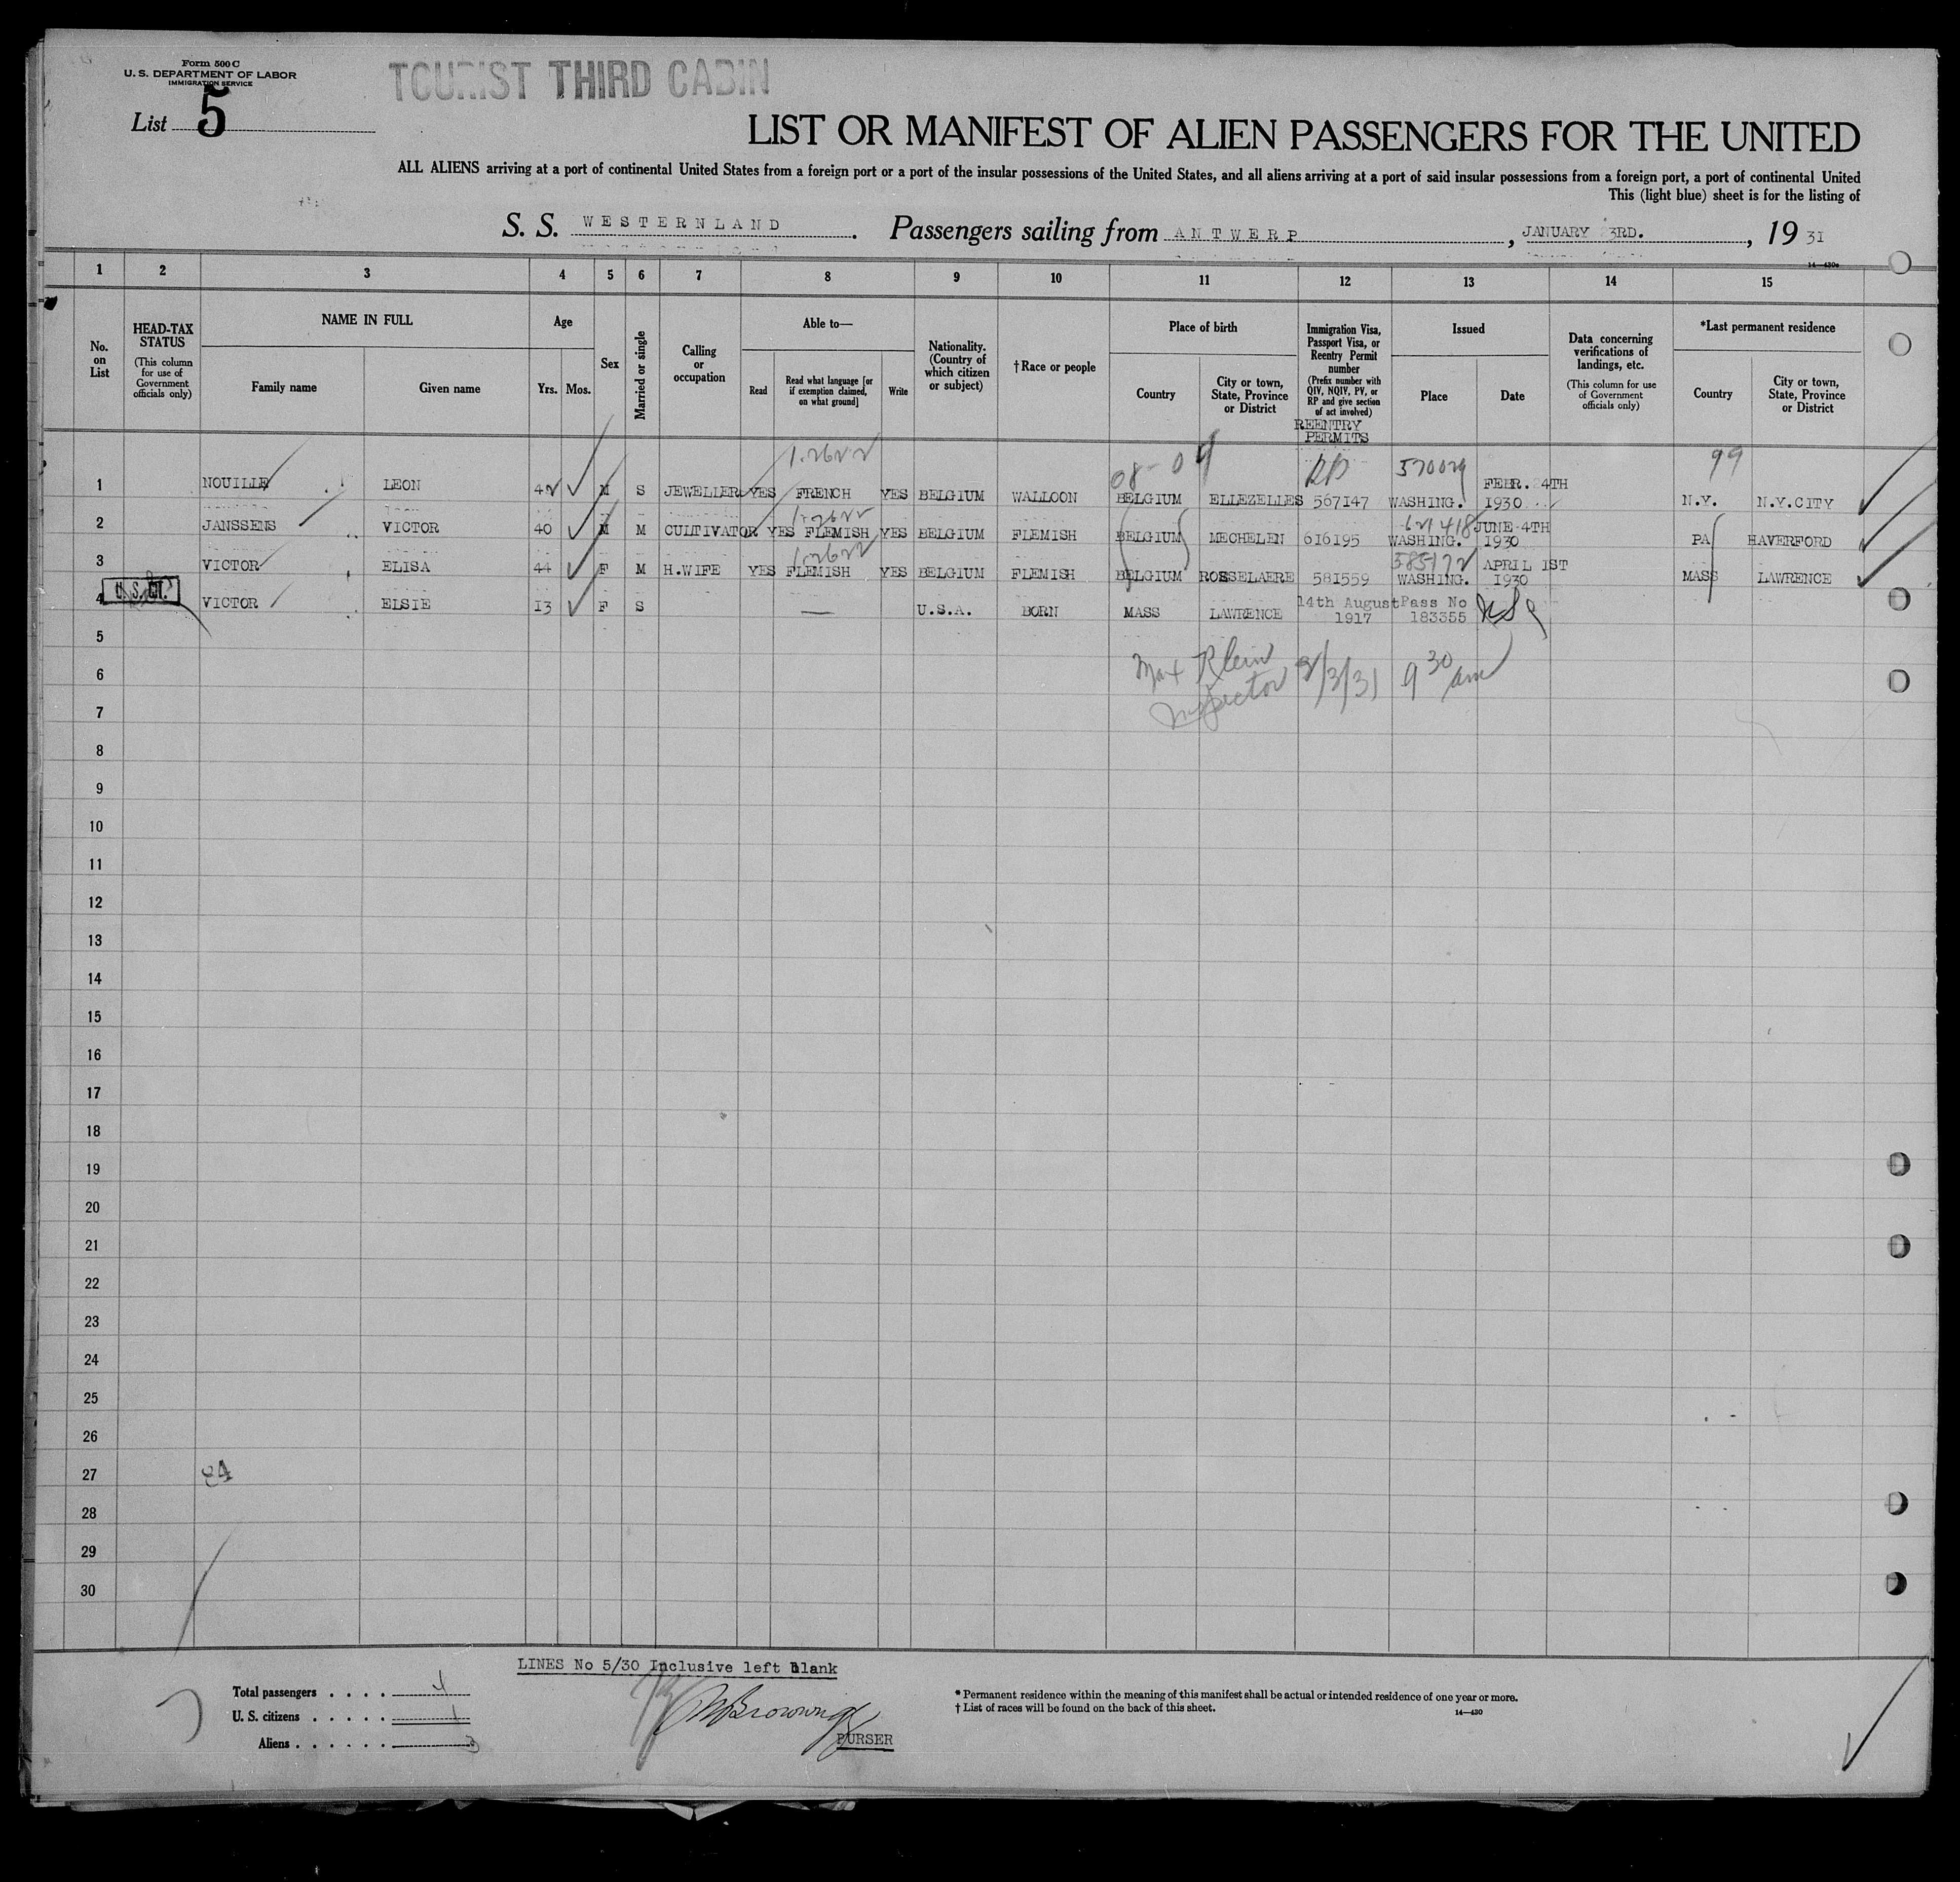 Form 500 C
U. S. DEPARTMENT OF LABOR
IMMIGRATION SERVICE
TOURIST THIRD CABIN
List 5
LIST OR MANIFEST OF ALIEN PASSENGERS FOR THE UNITED
ALL ALIENS arriving at a port of continental United States from a foreign port or a port of the insular possessions of the United States, and all aliens arriving at a port of said insular possessions from a foreign port, a port of continental United
This (light blue) sheet is for the listing of
S. S. WESTERNLAND. Passengers sailing from ANTWERP, JANUARY 3RD., 19 31
14—430a
1 2 3 4 5 6 7 8 9 10 11 12 13 14 15
No. on List
HEAD-TAX STATUS
(This column for use of Government officials only)
NAME IN FULL
Family name
Given name
Age
Yrs. Mos.
Sex
Married or single
Calling or occupation
Able to—
Read
Read what language [or if exemption claimed, on what ground]
Write
Nationality. (Country of which citizen or subject)
†Race or people
Place of birth
Country
City or town, State, Province or District
Immigration Visa, Passport Visa, or Reentry Permit number
(Prefix number with QIV, NQIV, PV, or RP and give section of act involved)
REENTRY PERMITS
Issued
Place
Date
Data concerning verifications of landings, etc.
(This column for use of Government officials only)
*Last permanent residence
Country
City or town, State, Province or District
1.2622 08-04 RP 570029 99
1 NOUILLE LEON 42 M S JEWELLER YES FRENCH YES BELGIUM WALLOON BELGIUM ELLEZELLES 567147 WASHING. FEBR. 24TH 1930 N.Y. N.Y.CITY
1-2622 621418
2 JANSSENS VICTOR 40 M M CULTIVATOR YES FLEMISH YES BELGIUM FLEMISH BELGIUM MECHELEN 616195 WASHING. JUNE 4TH 1930 PA HAVERFORD
1-2622 585172
3 VICTOR ELISA 44 F M H.WIFE YES FLEMISH YES BELGIUM FLEMISH BELGIUM ROESSELAERE 581559 WASHING. APRIL 1ST 1930 MASS LAWRENCE
U. S. CIT.
4 VICTOR ELSIE 13 F S — U.S.A. BORN MASS LAWRENCE 14th August 1917 Pass No 183355
5
6 Max Klein 2/3/31 9 30 am
Inspector
7
8
9
10
11
12
13
14
15
16
17
18
19
20
21
22
23
24
25
26
27
28
29
30
LINES No 5/30 Inclusive left blank
Total passengers . . . . 4
U. S. citizens . . . . . 1
Aliens . . . . . . 3
Browning
PURSER
* Permanent residence within the meaning of this manifest shall be actual or intended residence of one year or more.
† List of races will be found on the back of this sheet.
14—430